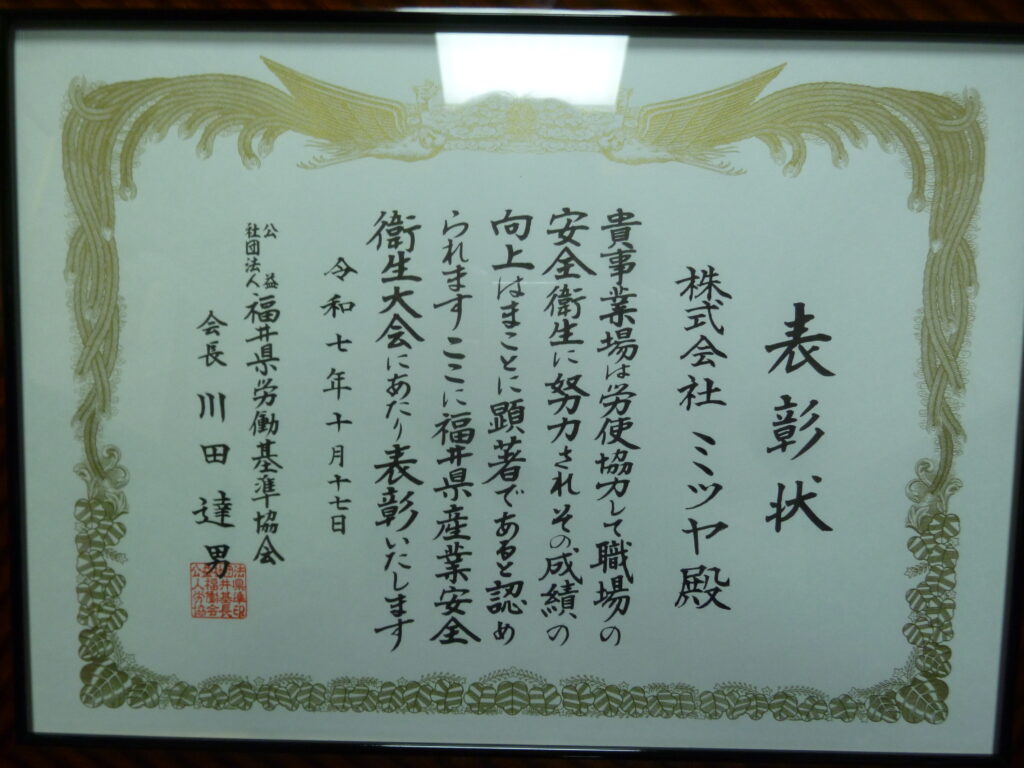 表彰状
株式会社 ミツヤ 殿
貴事業場は労使協力して職場の
安全衛生に努力されその成績の
向上はまことに顕著であると認め
られますここに福井県産業安全
衛生大会にあたり表彰いたします
令和七年十月十七日
公益社団法人 福井県労働基準協会
会長 川田達男